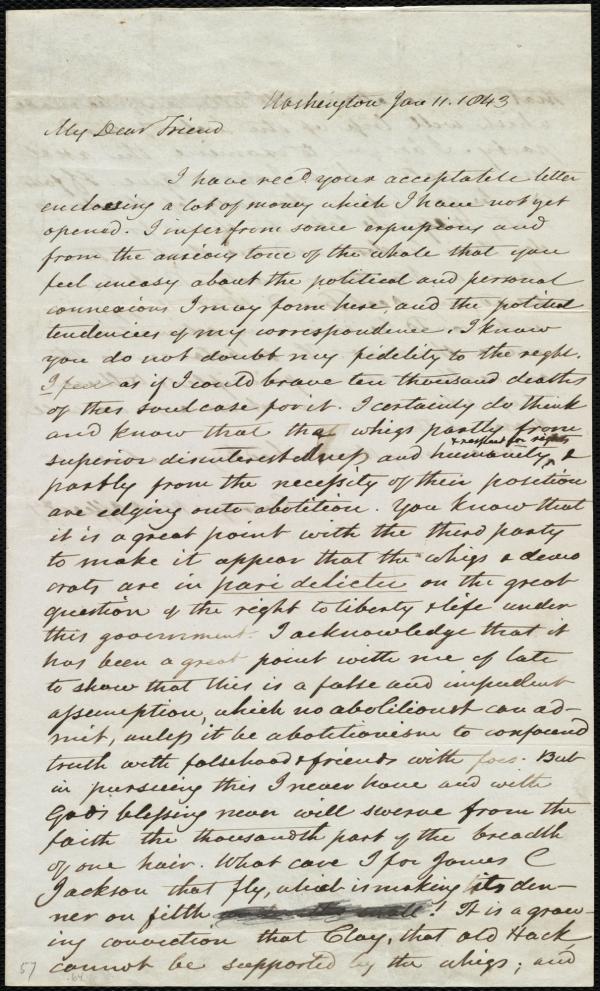 Washington Jan 11. 1843
My Dear Friend
I have recd. your acceptable letter
enclosing a lot of money which I have not yet
opened. I infer from some expressions and
from the anxious tone of the whole that you
feel uneasy about the political and personal
connexions I may form here, and the political
tendencies of my correspondence. I know
you do not doubt my fidelity to the right.
I feel as if I could brave ten thousand deaths
of this soulcase for it. I certainly do think
and know that the whigs partly from
& respect for rights
superior disinterestedness and humanity, &
partly from the necessity of their position
are edging onto abolition. You know that
it is a great point with the third party
to make it appear that the whigs & demo
crats are in pari delictu on the great
question of the right to liberty & life under
this government. I acknowledge that it
has been a great point with me of late
to show that this is a false and impudent
assumption, which no abolitionist can ad-
mit, unless it be abolitionism to confound
truth with falsehood & friends with foes. But
in pursuing this I never have and with
God's blessing never will swerve from the
faith the thousandth part of the breadth
of one hair. What care I for James C
Jackson that fly, which is making its din-
ner on filth ! It is a grow-
ing conviction that Clay, that old Hack
cannot be supported by the whigs; and
57